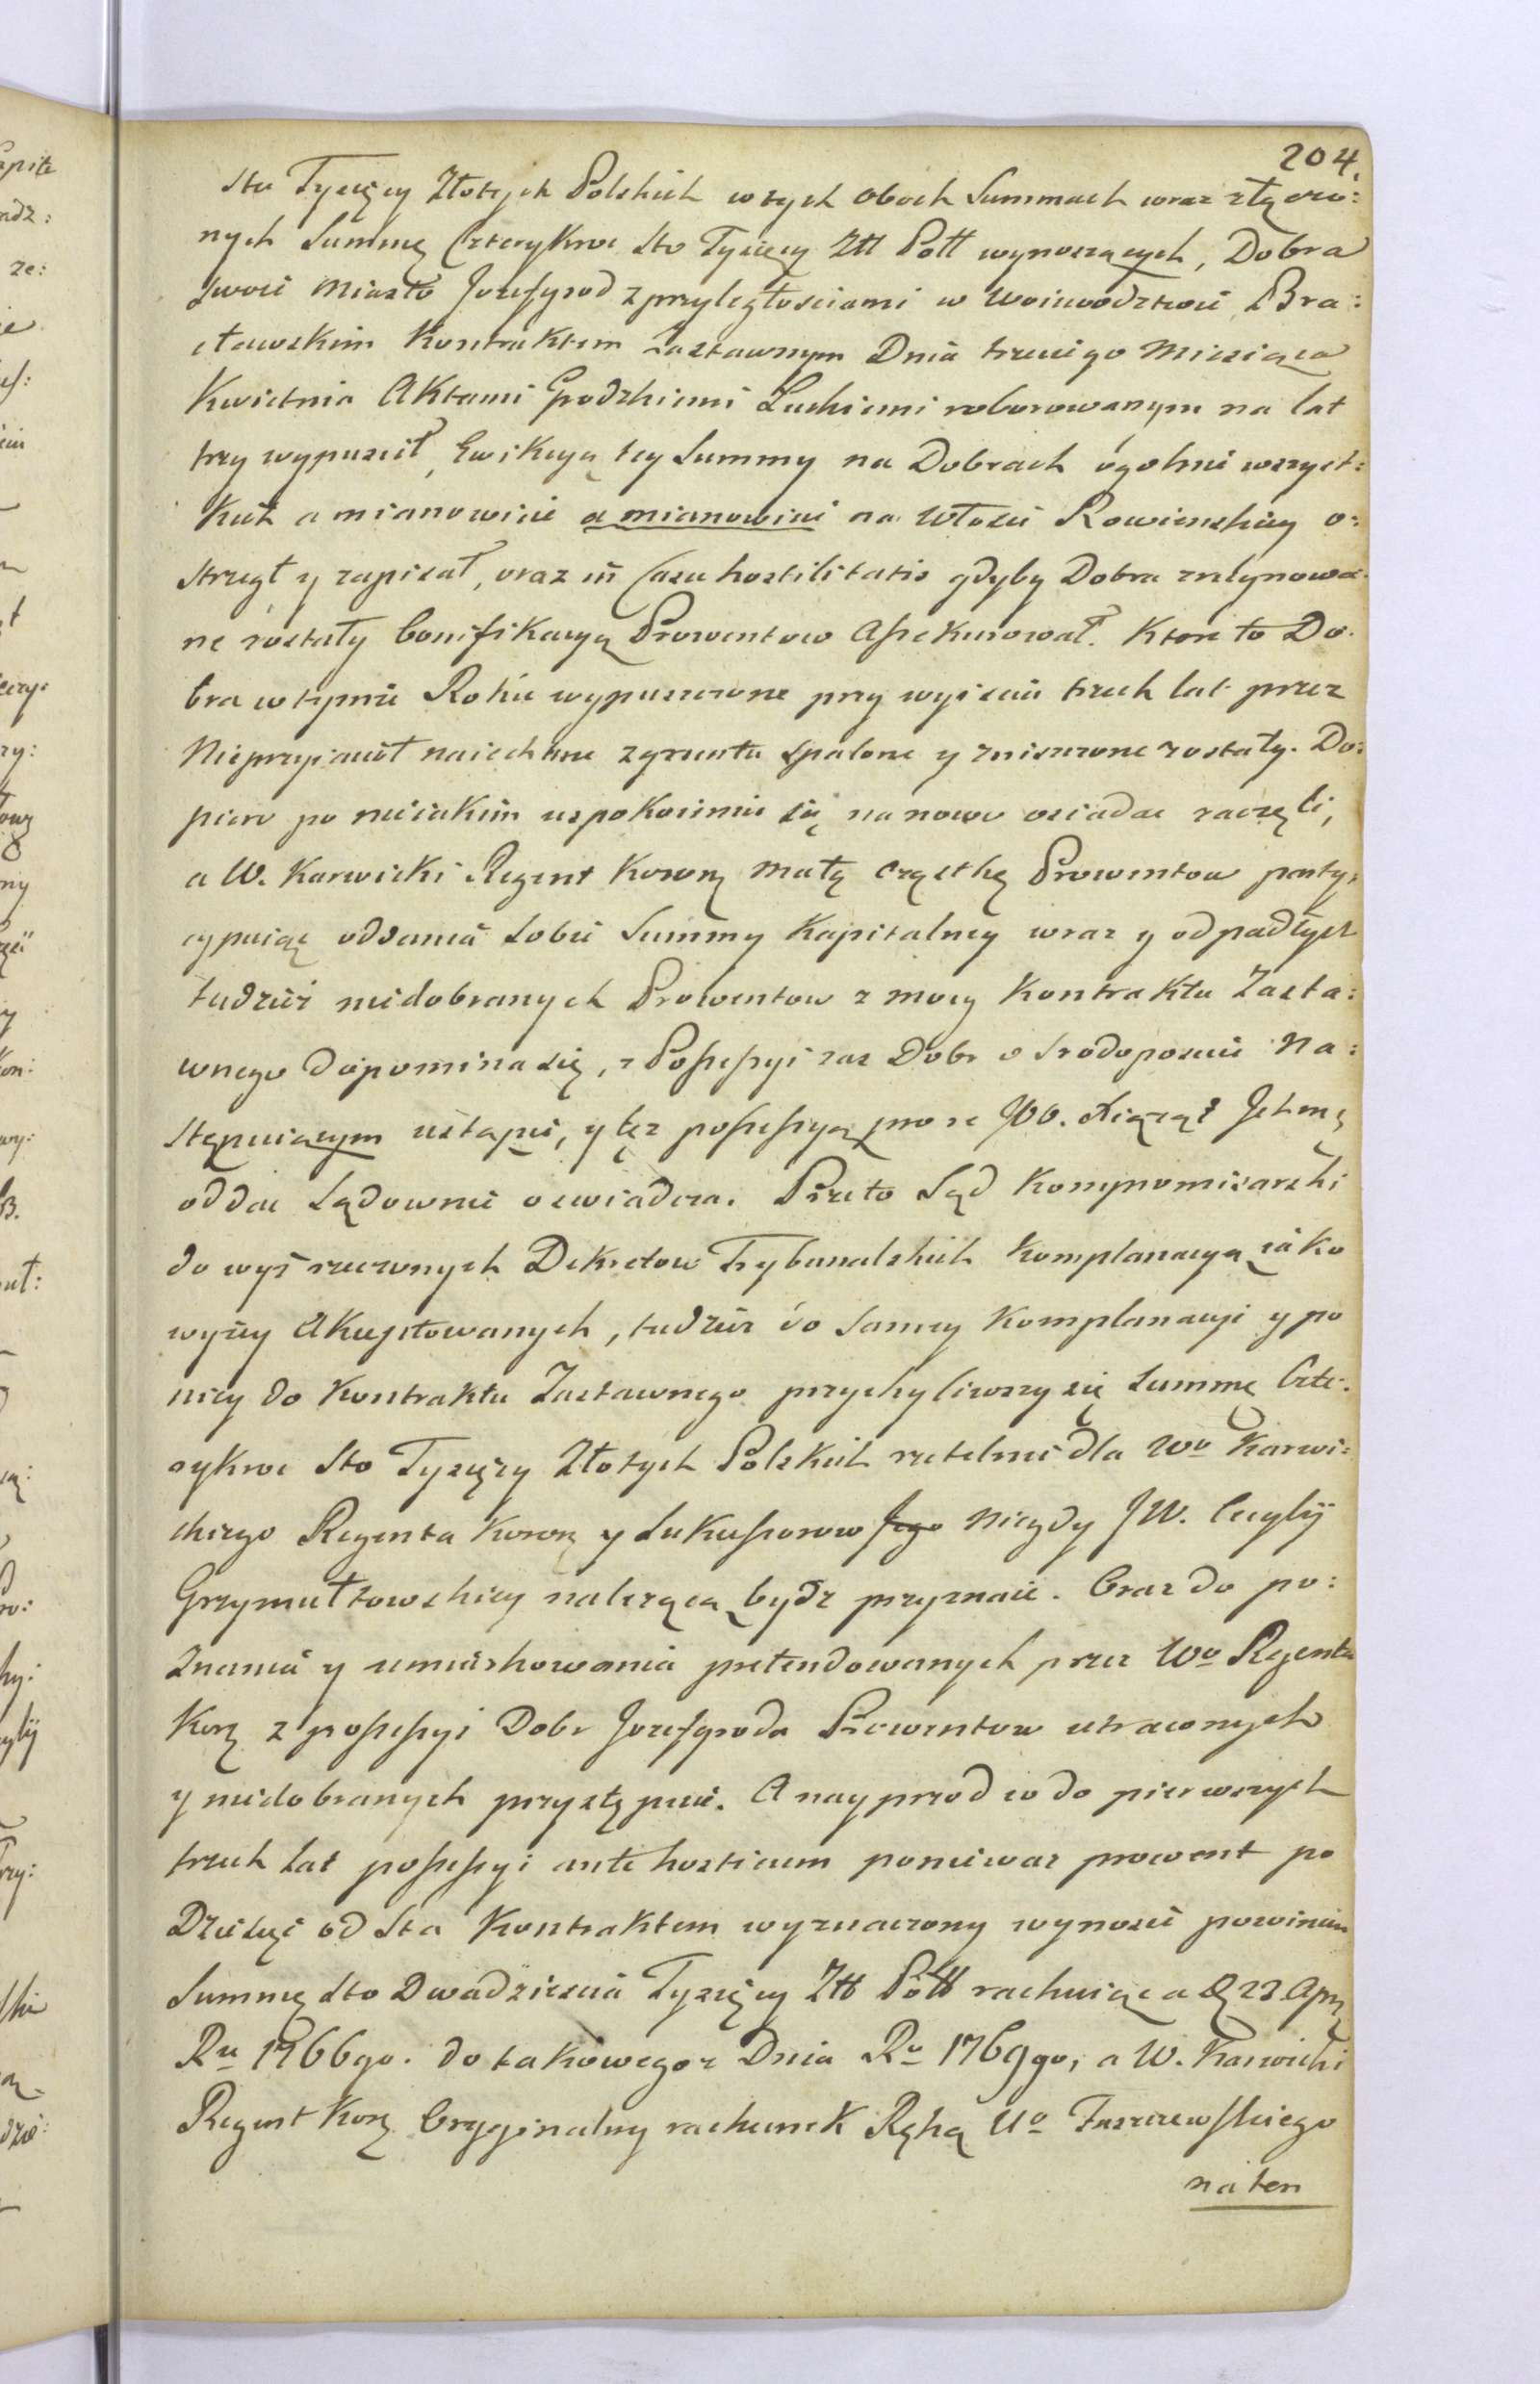 204.
Sto Tysięcy Złotych Polskich w tych oboch Summach wraz złączo:
nych Summę Czterykroć Sto Tysięcy Ztt Poltt wynoszących, Dobra
swoie Miasto Jozefgrod z przyległosciami w Woiewodztwie Bra:
cławskim Kontraktem Zastawnym Dnia trzeciego Miesiąca
Kwietnia Aktami Grodzkiemi Luckiemi roborowanym na lat
trzy wypuscił, Ewikcyą tey Summy na Dobrach ogolnie wszyst:
kich a mianowicie a mianowicie na Włosci Rowienskiey o:
strzegł y zapisał, oraz in Casu hostilitatis gdyby Dobra zruynowa:
ne zostały bonifikacyą Prowentow Assekurował. Ktore to Do:
bra w tymże Roku wypuszczone przy wyisciu trzech lat przez
Nieprzyiacioł naiechane z gruntu spalone y zniszczone zostały. Do:
piero po nieiakim uspokoieniu się na nowo osiadac zaczęli,
a W. Karwicki Regent Koronny małą cząstkę Prowentow party:
cypuiąc oddania sobie Summy Kapitalney wraz y odpadłych
tudzież niedobranych Prowentow z mocy Kontraktu Zasta:
wnego dopomina się, z Possessyi zas Dobr o Srodoposciu Na:
stępuiącym ustąpic, y tęż possessyą pro re JOO. Xiążąt Jchmę
oddac Sądownie oswiadcza. Przeto Sąd Kompromisarski
do wyż rzeczonych Dekretow Trybunalskich Komplanacyą iako
wyżey Akceptowanych, tudzież do samey Komplanacyi y po
niey do Kontraktu Zastawnego przychyliwszy się Summę Czte:
rykroc Sto Tysięcy Złotych Polskich rzetelnie dla Wo Karwi:
ckiego Regenta Koronę y Sukcessorow Jego Niegdy JW. Cecylij
Grzymułtowskiey należącą bydz przyznaie. Oraz do po:
znania y umiarkowania pretendowanych przez Wo Regenta
Korę z possessyi Dobr Jozefgroda Prowentow utraconych
y niedobranych przystępuie. A nayprzod co do pierwszych
trzech lat possessyi ante hosticum poniewaz prowent po
Dziesięć od Sta Kontraktem wyznaczony wynosić powinien
Summę Sto Dwadziescia Tysięcy Ztt Poltt rachuiąc a D 23 Aprę
Ru 1766go. do takowegoz Dnia Ro 1769go, a W. Karwicki
Regent Korę Oryginalny rachunek Ręką Uo
na ten